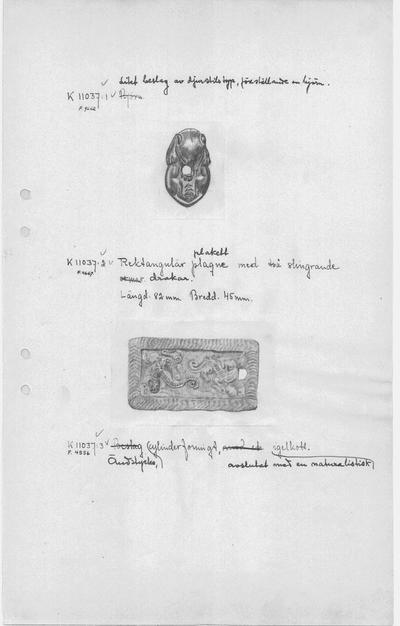 Litet beslag av djurstilstyp, föreställande en björn.
K 11037:1 Björn
plakett
K 11037:2 Rektangulär plaque med två slingrande
drakar.
Längd: 82 mm. Bredd: 45 mm.
K 11037:3 Beslag cylinderformigt, igelkott.
F. 4556 Ändstycke, avslutat med en naturalistisk